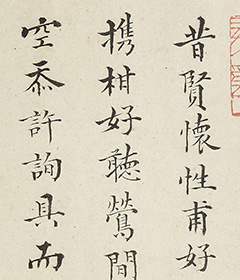 昔賢懷性甫好
携柑好聴鶯間
空忝許詢具而